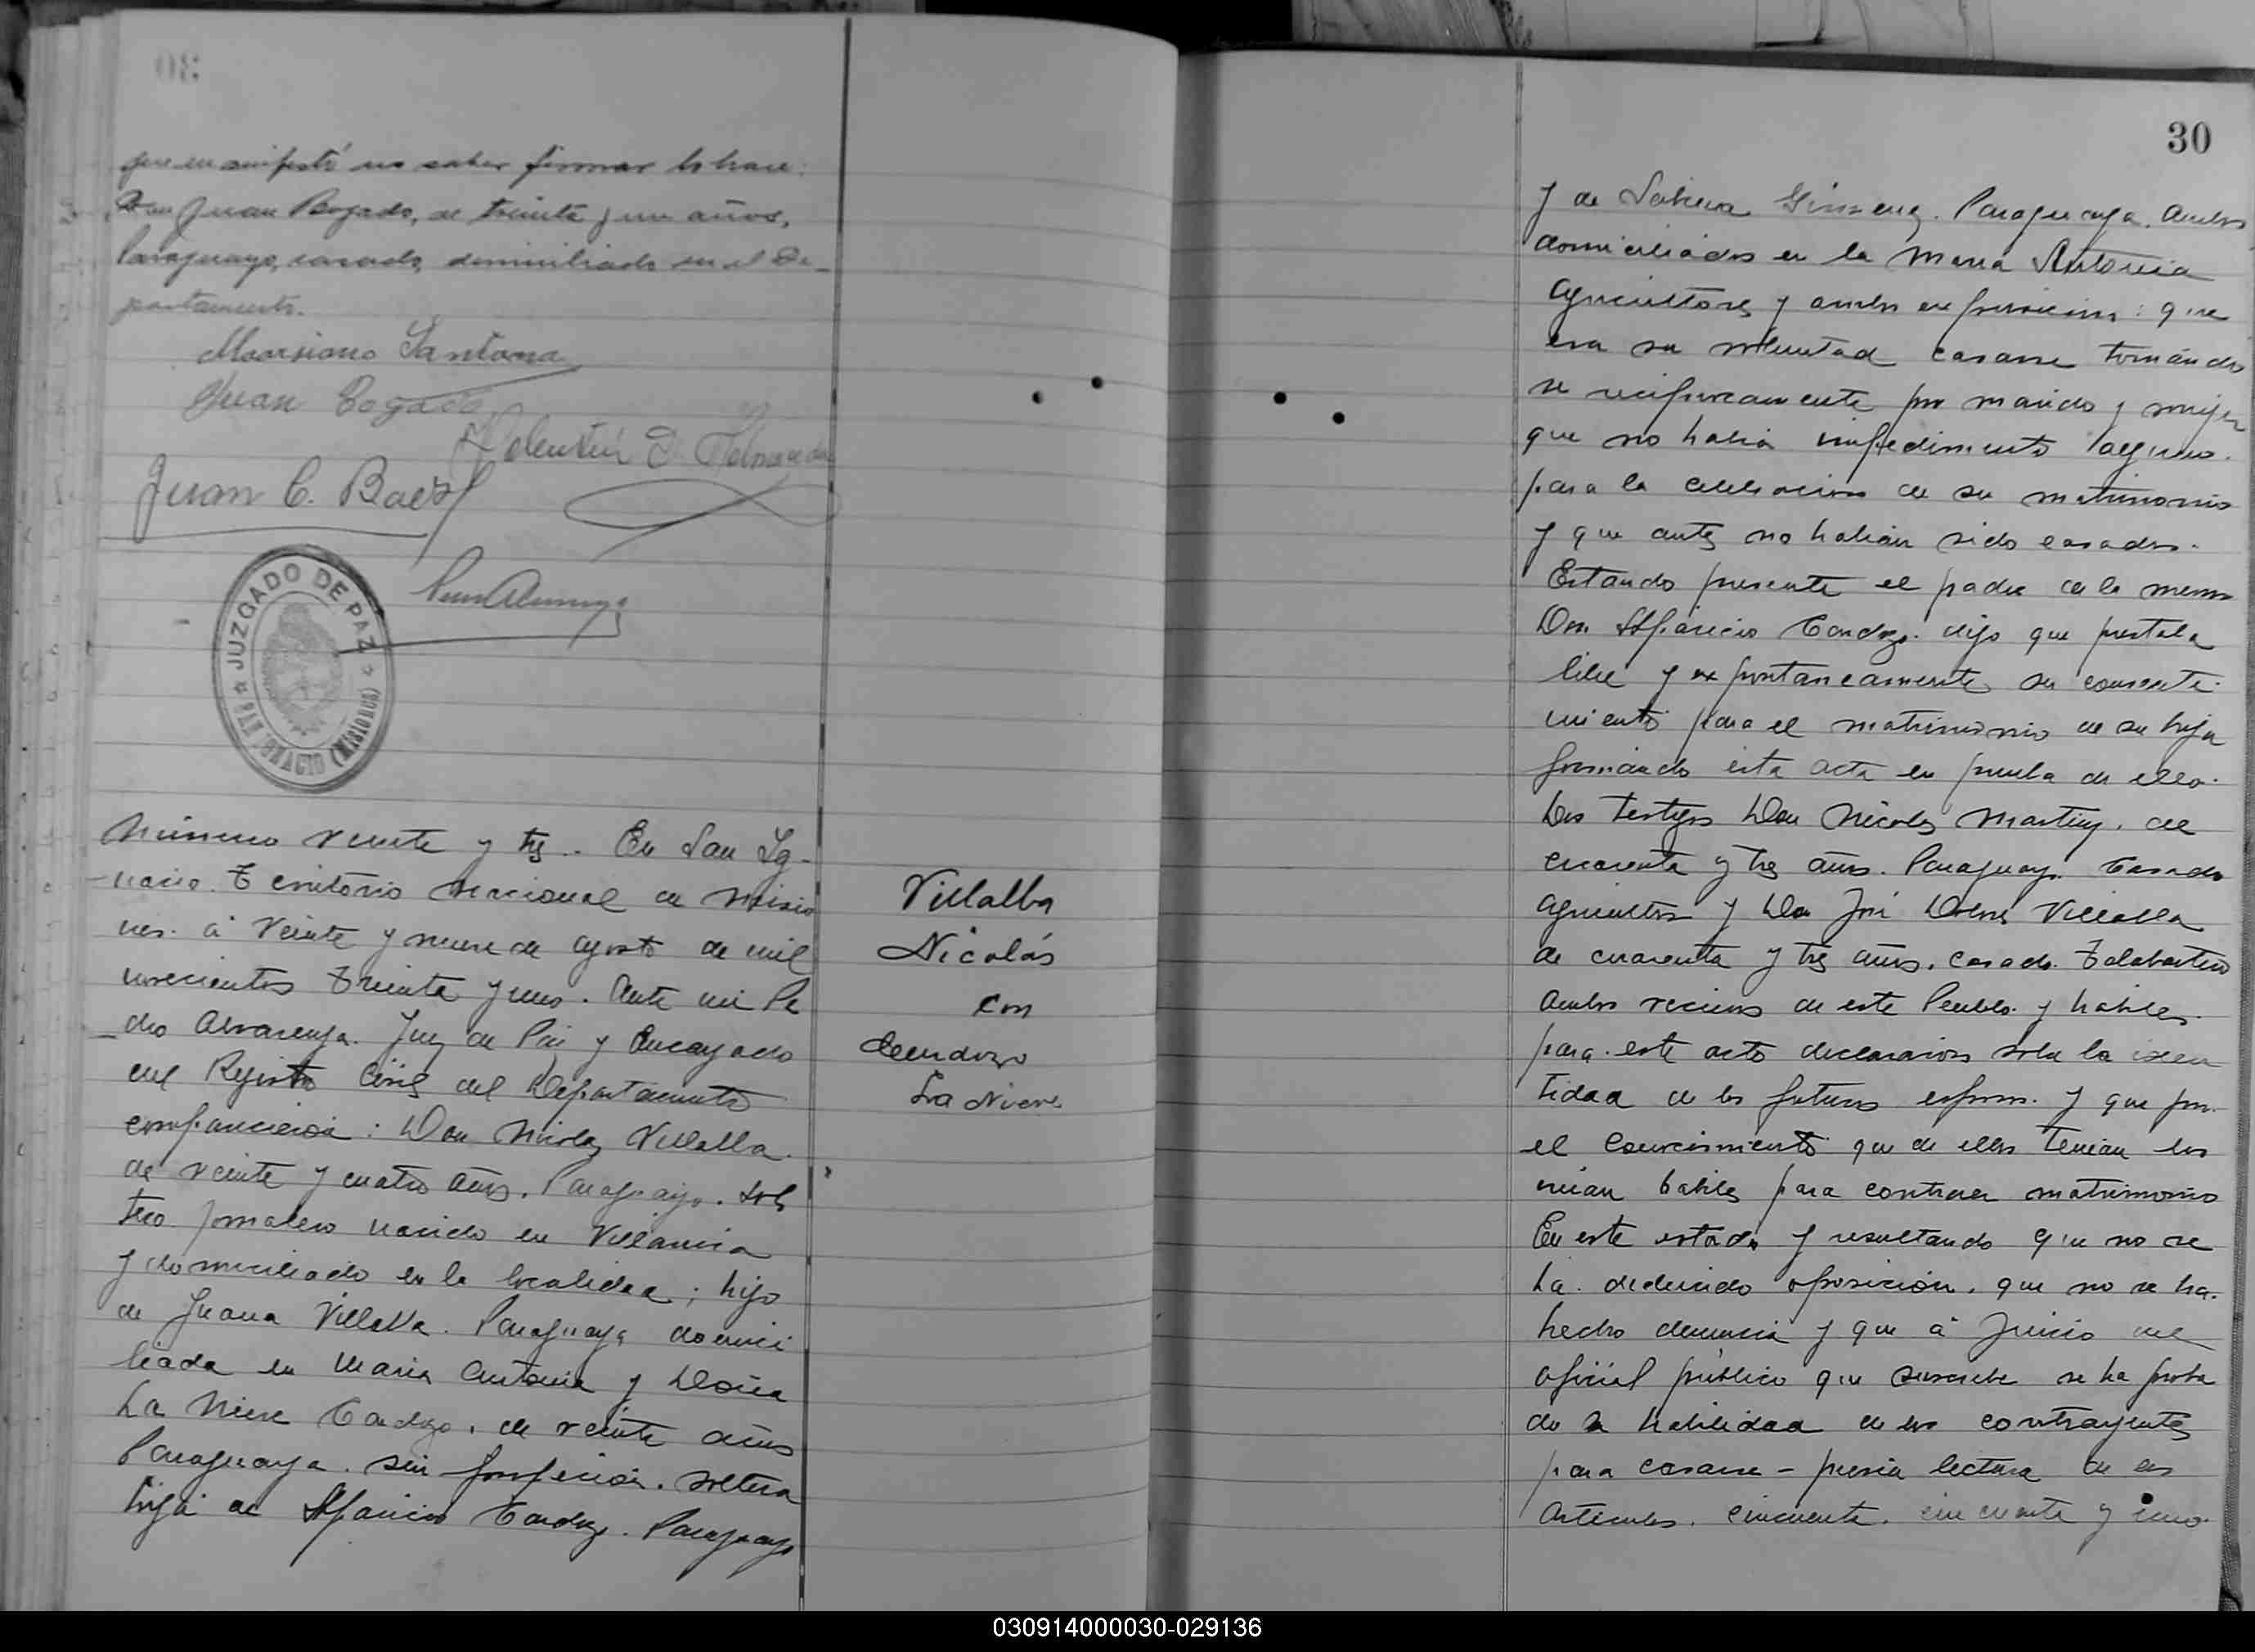 30
que manifestó no saber firmar lo hace:
Don Juan Bogado, de treinta y un años,
Paraguayo, casado, domiciliado en el De-
partamento.
Marsiano Santana
Juan Bogado
Valentín
Juan C. Baez
JUZGADO DE PAZ
SAN IGNACIO (MISIONES)
Número veinte y tres. En San Ig-
nacio. Territorio Nacional de Misio
nes. á veinte y nueve de agosto de mil
novecientos treinta y uno. Ante mi Pe
dro Alvarenga. Juez de Paz y Encargado
del Registro Civil del Departamento
comparecieron: Don Nicolas Villalba.
de veinte y cuatro años. Paraguayo. sol
tero jornalero nacido en Villarica
y domiciliado en la localidad; hijo
de Juana Villalba. Paraguaya domici
liada en Maria Antonia y Doña
La Nieve Cardozo. de veinte años
Paraguaya. sin profecion. soltera
hija de Aparicio Cardozo. Paraguayo
Villalba
Nicolás
con
Cardozo
La Nieve
30
y de Gimenez. Paraguaya. ambos
domiciliados en la Maria Antonia
agricultores y ambos expusieron: que
era su voluntad casarse tomándo
se reciprocamente por marido y mujer
que no habia impedimento alguno.
para la celebracion de su matrimonio
y que antes no habian sido casados.
Estando presente el padre de la menor
Don Aparicio Cardozo. dijo que prestaba
libre y expontaneamente su consenti-
miento para el matrimonio de su hija
firmando esta acta en prueba de ello.
Los testigos Don Nicolas Martinez. de
cuarenta y tres años. Paraguayo. Casado
agricultor y Don José Dolores Villalba
de cuarenta y tres años. casado. Talabartero
ambos vecinos de este Pueblo. y habiles.
para este acto declararon sobre la iden
tidad de los futuros esposos. y que por.
el conocimiento que de ellos tenian los
creian habiles para contraer matrimonio
En este estado y resultando que no se
ha deducido oposición. que no se ha.
hecho denuncia y que á juicio del
oficial público que suscribe se ha proba
do la habilidad de los contrayentes
para casarse - previa lectura de los
articulos. cincuenta. cincuenta y uno.
030914000030-029136